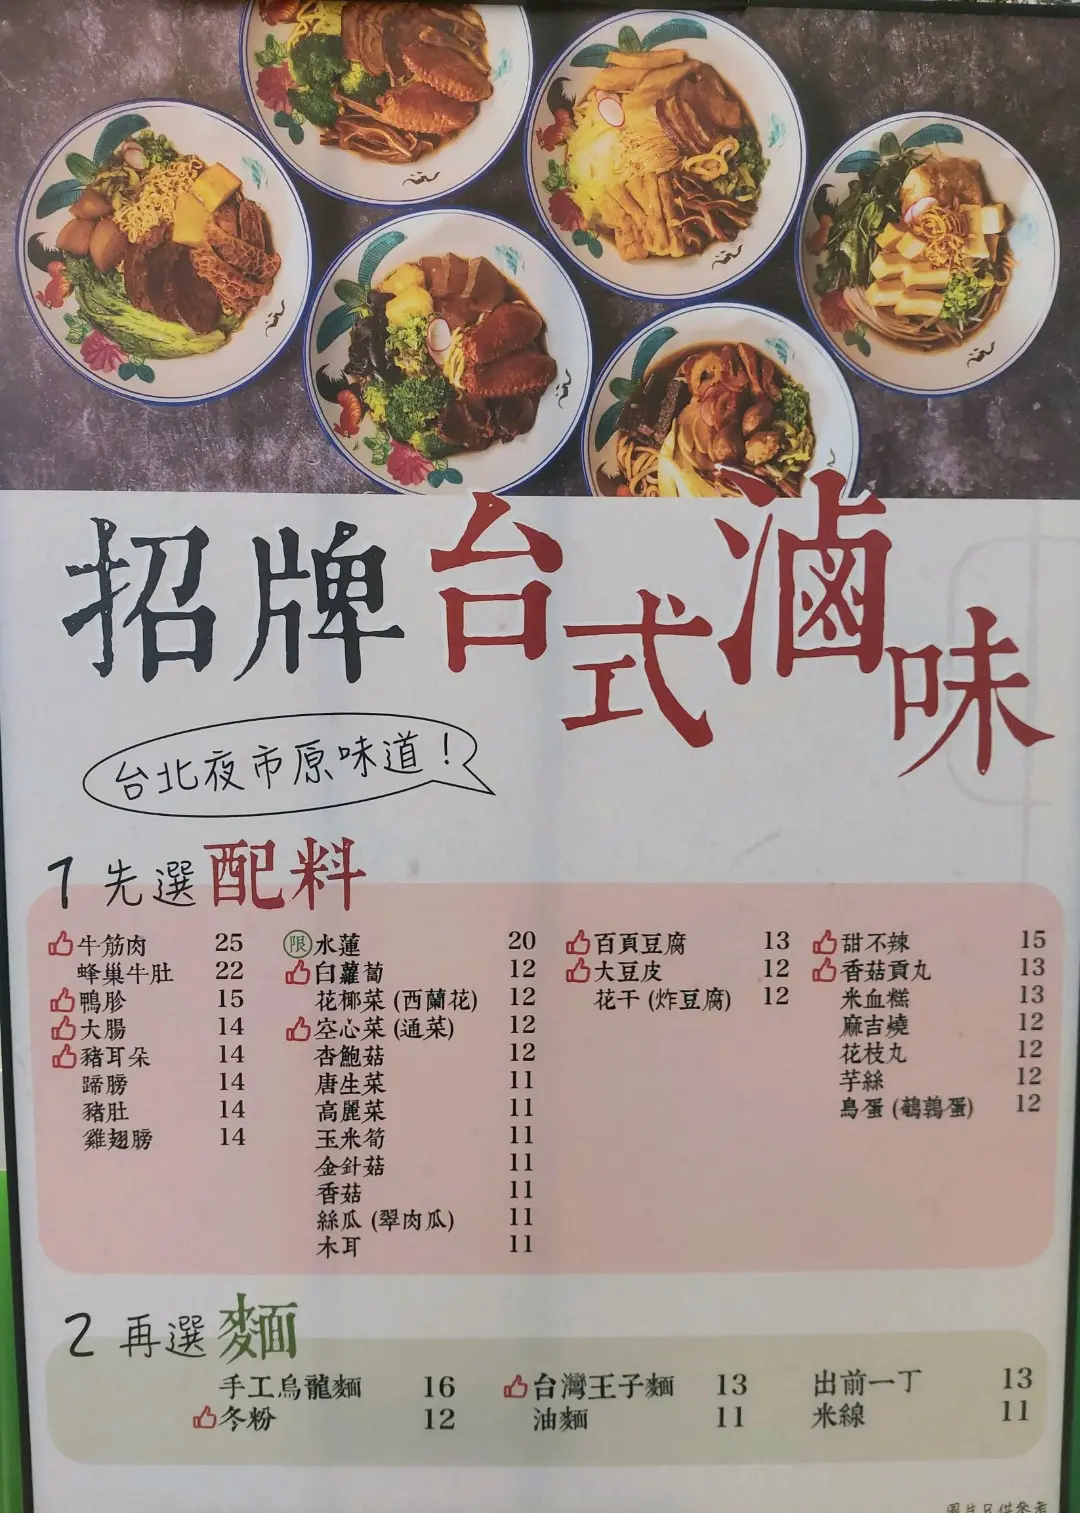 招牌台式滷味
台北夜市原味道！
1 先選配料
牛筋肉 25
蜂巢牛肚 22
鴨胗 15
大腸 14
豬耳朵 14
蹄膀 14
豬肚 14
雞翅膀 14
限 水蓮 20
白蘿蔔 12
花椰菜 (西蘭花) 12
空心菜 (通菜) 12
杏鮑菇 12
唐生菜 11
高麗菜 11
玉米筍 11
金針菇 11
香菇 11
絲瓜 (翠肉瓜) 11
木耳 11
百頁豆腐 13
大豆皮 12
花干 (炸豆腐) 12
甜不辣 15
香菇貢丸 13
米血糕 13
麻吉燒 12
花枝丸 12
芋絲 12
鳥蛋 (鵪鶉蛋) 12
2 再選麵
手工烏龍麵 16
冬粉 12
台灣王子麵 13
油麵 11
出前一丁 13
米線 11
圖片只供參考